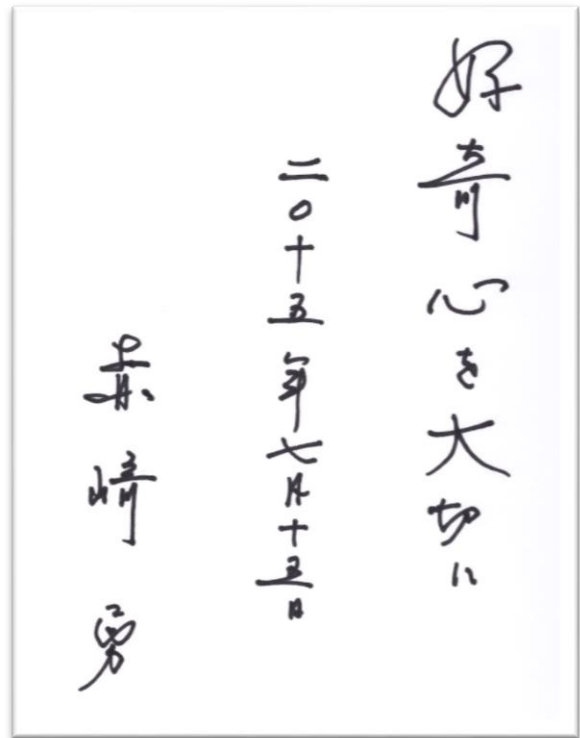 好奇心を大切に
二〇十五年七月十五日
赤﨑勇